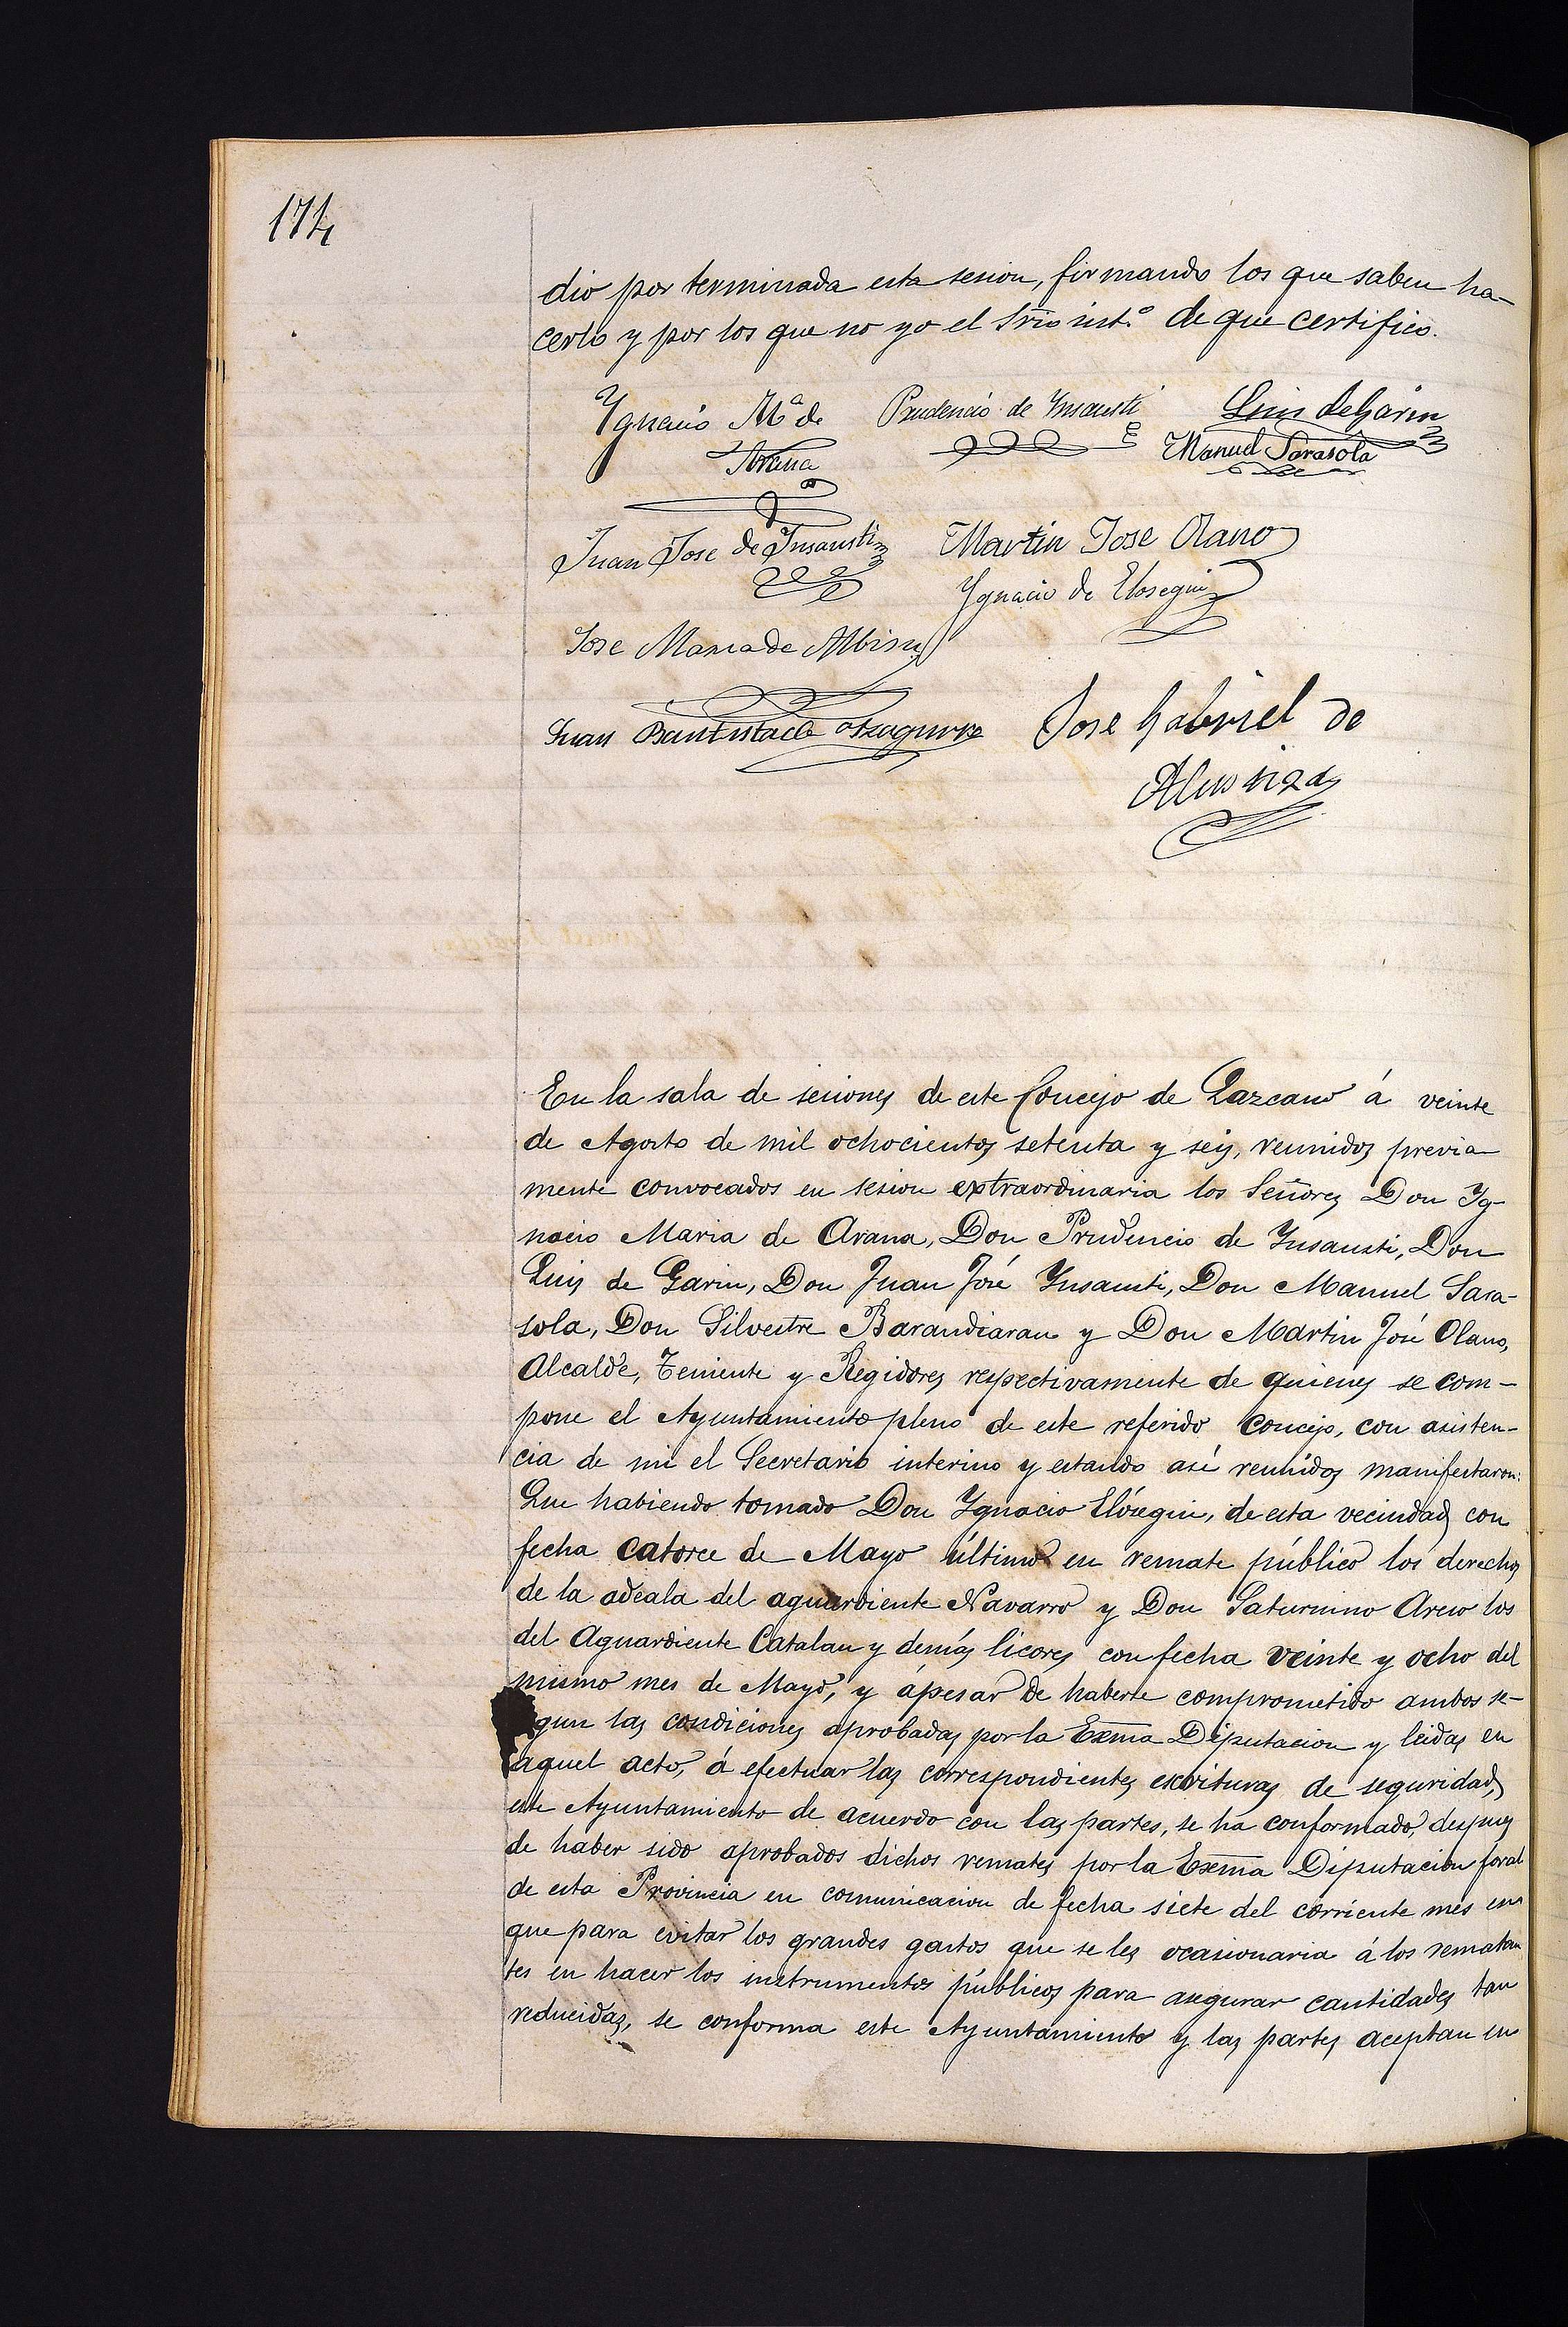 174
dio por terminada esta sesion, firmando los que saben ha-
cerlo y por los que no yo el Srio int.º de que certifico.
Ygnacio Mª de Arana
Prudencio de Insausti
Luis de Garin
Manuel Sarasola
Juan Jose de Insausti
Martin Jose Olano
Ygnacio de Elosegui
Jose Maria de Albisu
Juan Bautista de
Jose Gabriel de
Alustiza
En la sala de sesiones de este Concejo de Lazcano á veinte
de Agosto de mil ochocientos setenta y seis, reunidos previa
mente convocados en sesion extraordinaria los Señores Don Yg-
nacio Maria de Arana, Don Prudencio de Ynsausti, Don
Luis de Garin, Don Juan José Ynsausti, Don Manuel Sara-
sola, Don Silvestre Barandiaran y Don Martin José Olano,
Alcalde, Teniente y Regidores respectivamente de quienes se com-
pone el Ayuntamiento pleno de este referido Concejo, con asisten-
cia de mi el Secretario interino y estando así reunidos manifestaron:
Que habiendo tomado Don Ygnacio Elósegui, de esta vecindad con
fecha catorce de Mayo último en remate público los derechos
de la adeala del aguardiente Navarro y Don Saturnino los
del Aguardiente Catalan y demás licores con fecha veinte y ocho del
mismo mes de Mayo, y ápesar de haberse comprometido ambos se-
gun las condiciones aprobadas por la Exma Diputacion y leidas en
aquel acto, á efectuar las correspondientes escrituras de seguridad,
este Ayuntamiento de acuerdo con las partes, se ha conformado, despues
de haber sido aprobados dichos remates por la Exma Diputacion foral
de esta Provincia en comunicacion de fecha siete del corriente mes en
que para evitar los grandes gastos que se les ocasionaria á los rematan
tes en hacer los instrumentos públicos para asegurar cantidades tan
reducidas, se conforma este Ayuntamiento y las partes aceptan en